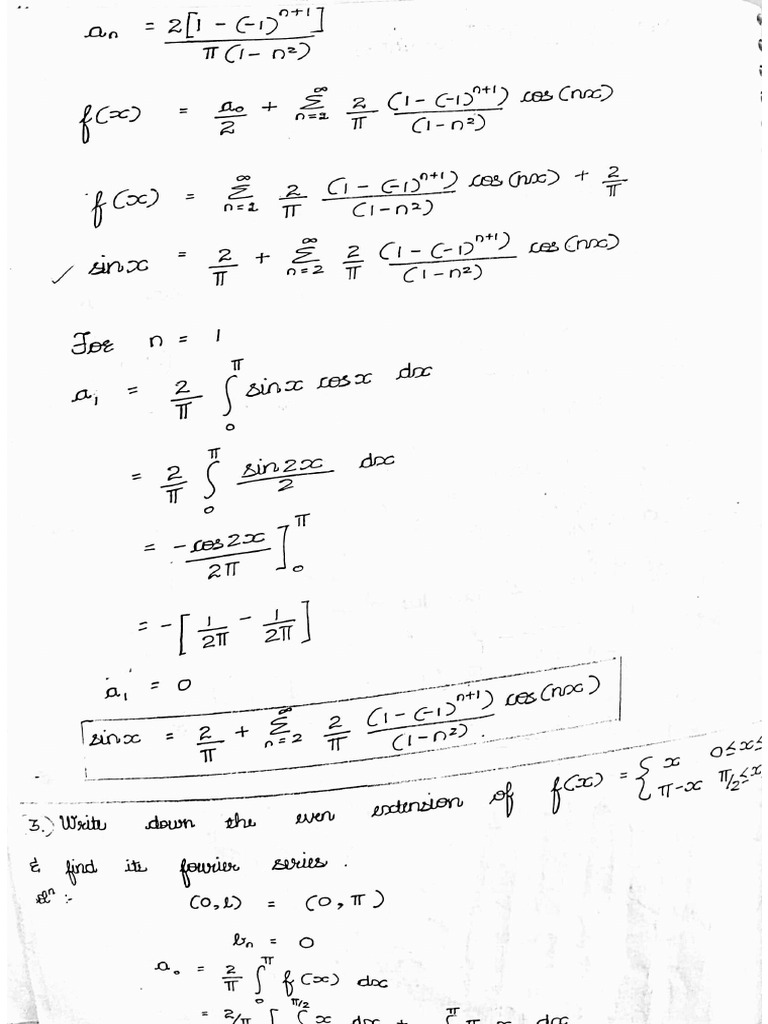 aₙ = 2[1 - (-1)ⁿ⁺¹] / π(1 - n²)
f(x) = a₀/2 + Σ_{n=2}^{∞} 2/π (1 - (-1)ⁿ⁺¹)/(1 - n²) cos(nx)
f(x) = Σ_{n=2}^{∞} 2/π (1 - (-1)ⁿ⁺¹)/(1 - n²) cos(nx) + 2/π
✓ sinx = 2/π + Σ_{n=2}^{∞} 2/π (1 - (-1)ⁿ⁺¹)/(1 - n²) cos(nx)
For n = 1
a₁ = 2/π ∫₀^π sinx cosx dx
= 2/π ∫₀^π sin2x/2 dx
= -cos2x/2π ]₀^π
= -[1/2π - 1/2π]
a₁ = 0
sinx = 2/π + Σ_{n=2}^{∞} 2/π (1 - (-1)ⁿ⁺¹)/(1 - n²) cos(nx).
3.) Write down the even extension of f(x) = { x 0≤x≤ ; π-x π/2≤x
& find its fourier series.
Solⁿ :- (0,l) = (0,π)
bₙ = 0
a₀ = 2/π ∫₀^π f(x) dx
= 2/π [ ∫^{π/2} x dx + ∫^π π-x dx